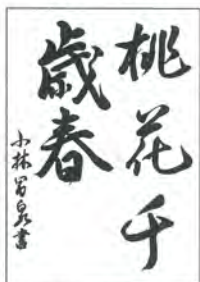 桃花千
歳春
小林翠泉書